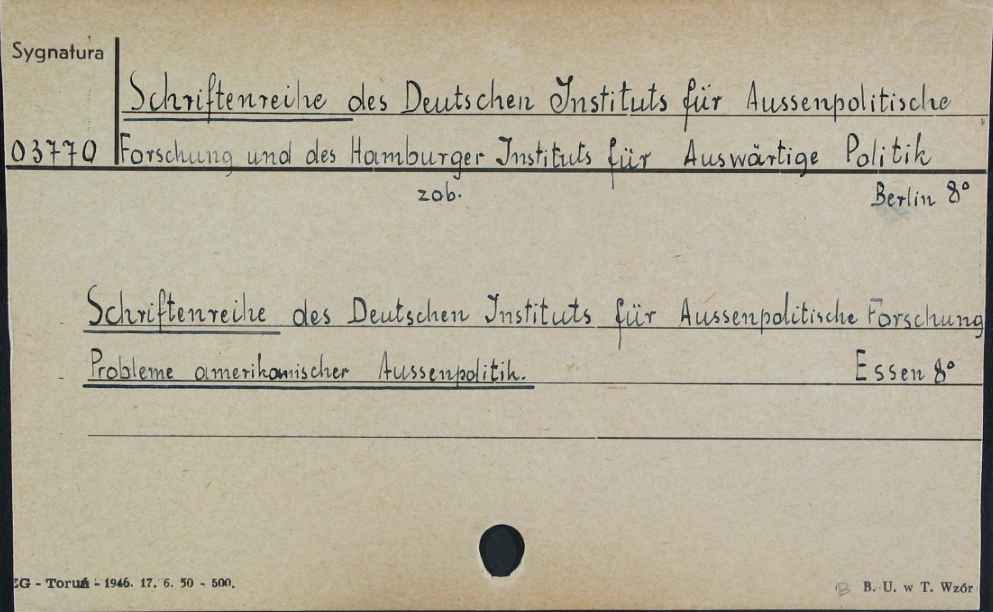 Sygnatura
Schriftenreihe des Deutschen Instituts für Aussenpolitische
03770 Forschung und des Hamburger Instituts für Auswärtige Politik
zob. Berlin 8°
Schriftenreihe des Deutschen Instituts für Aussenpolitische Forschung
Probleme amerikanischer Aussenpolitik. Essen 8°
EG - Toruń - 1946. 17. 6. 50 - 500. B. U. w T. Wzór